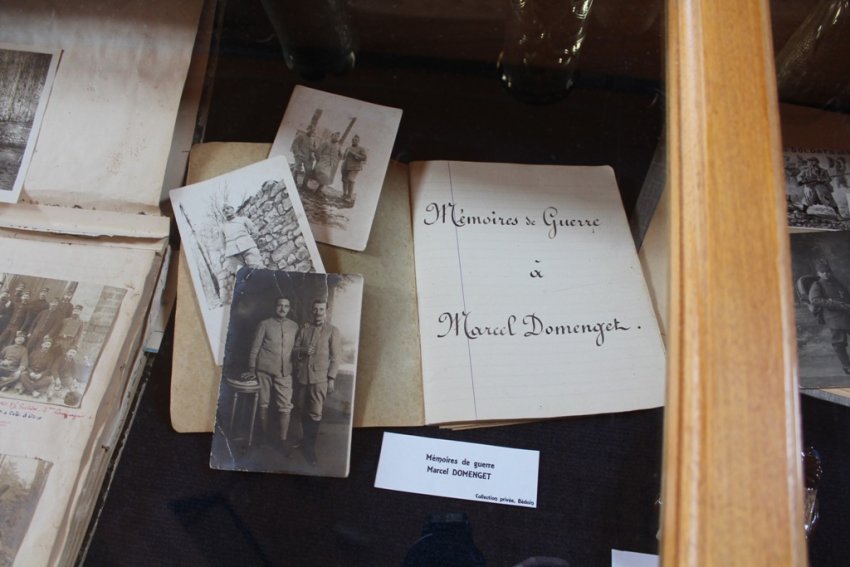 Mémoires de Guerre
à
Marcel Domenget.
Mémoires de guerre
Marcel DOMENGET
Collection privée, Bédoin